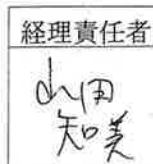 経理責任者
山田
知美